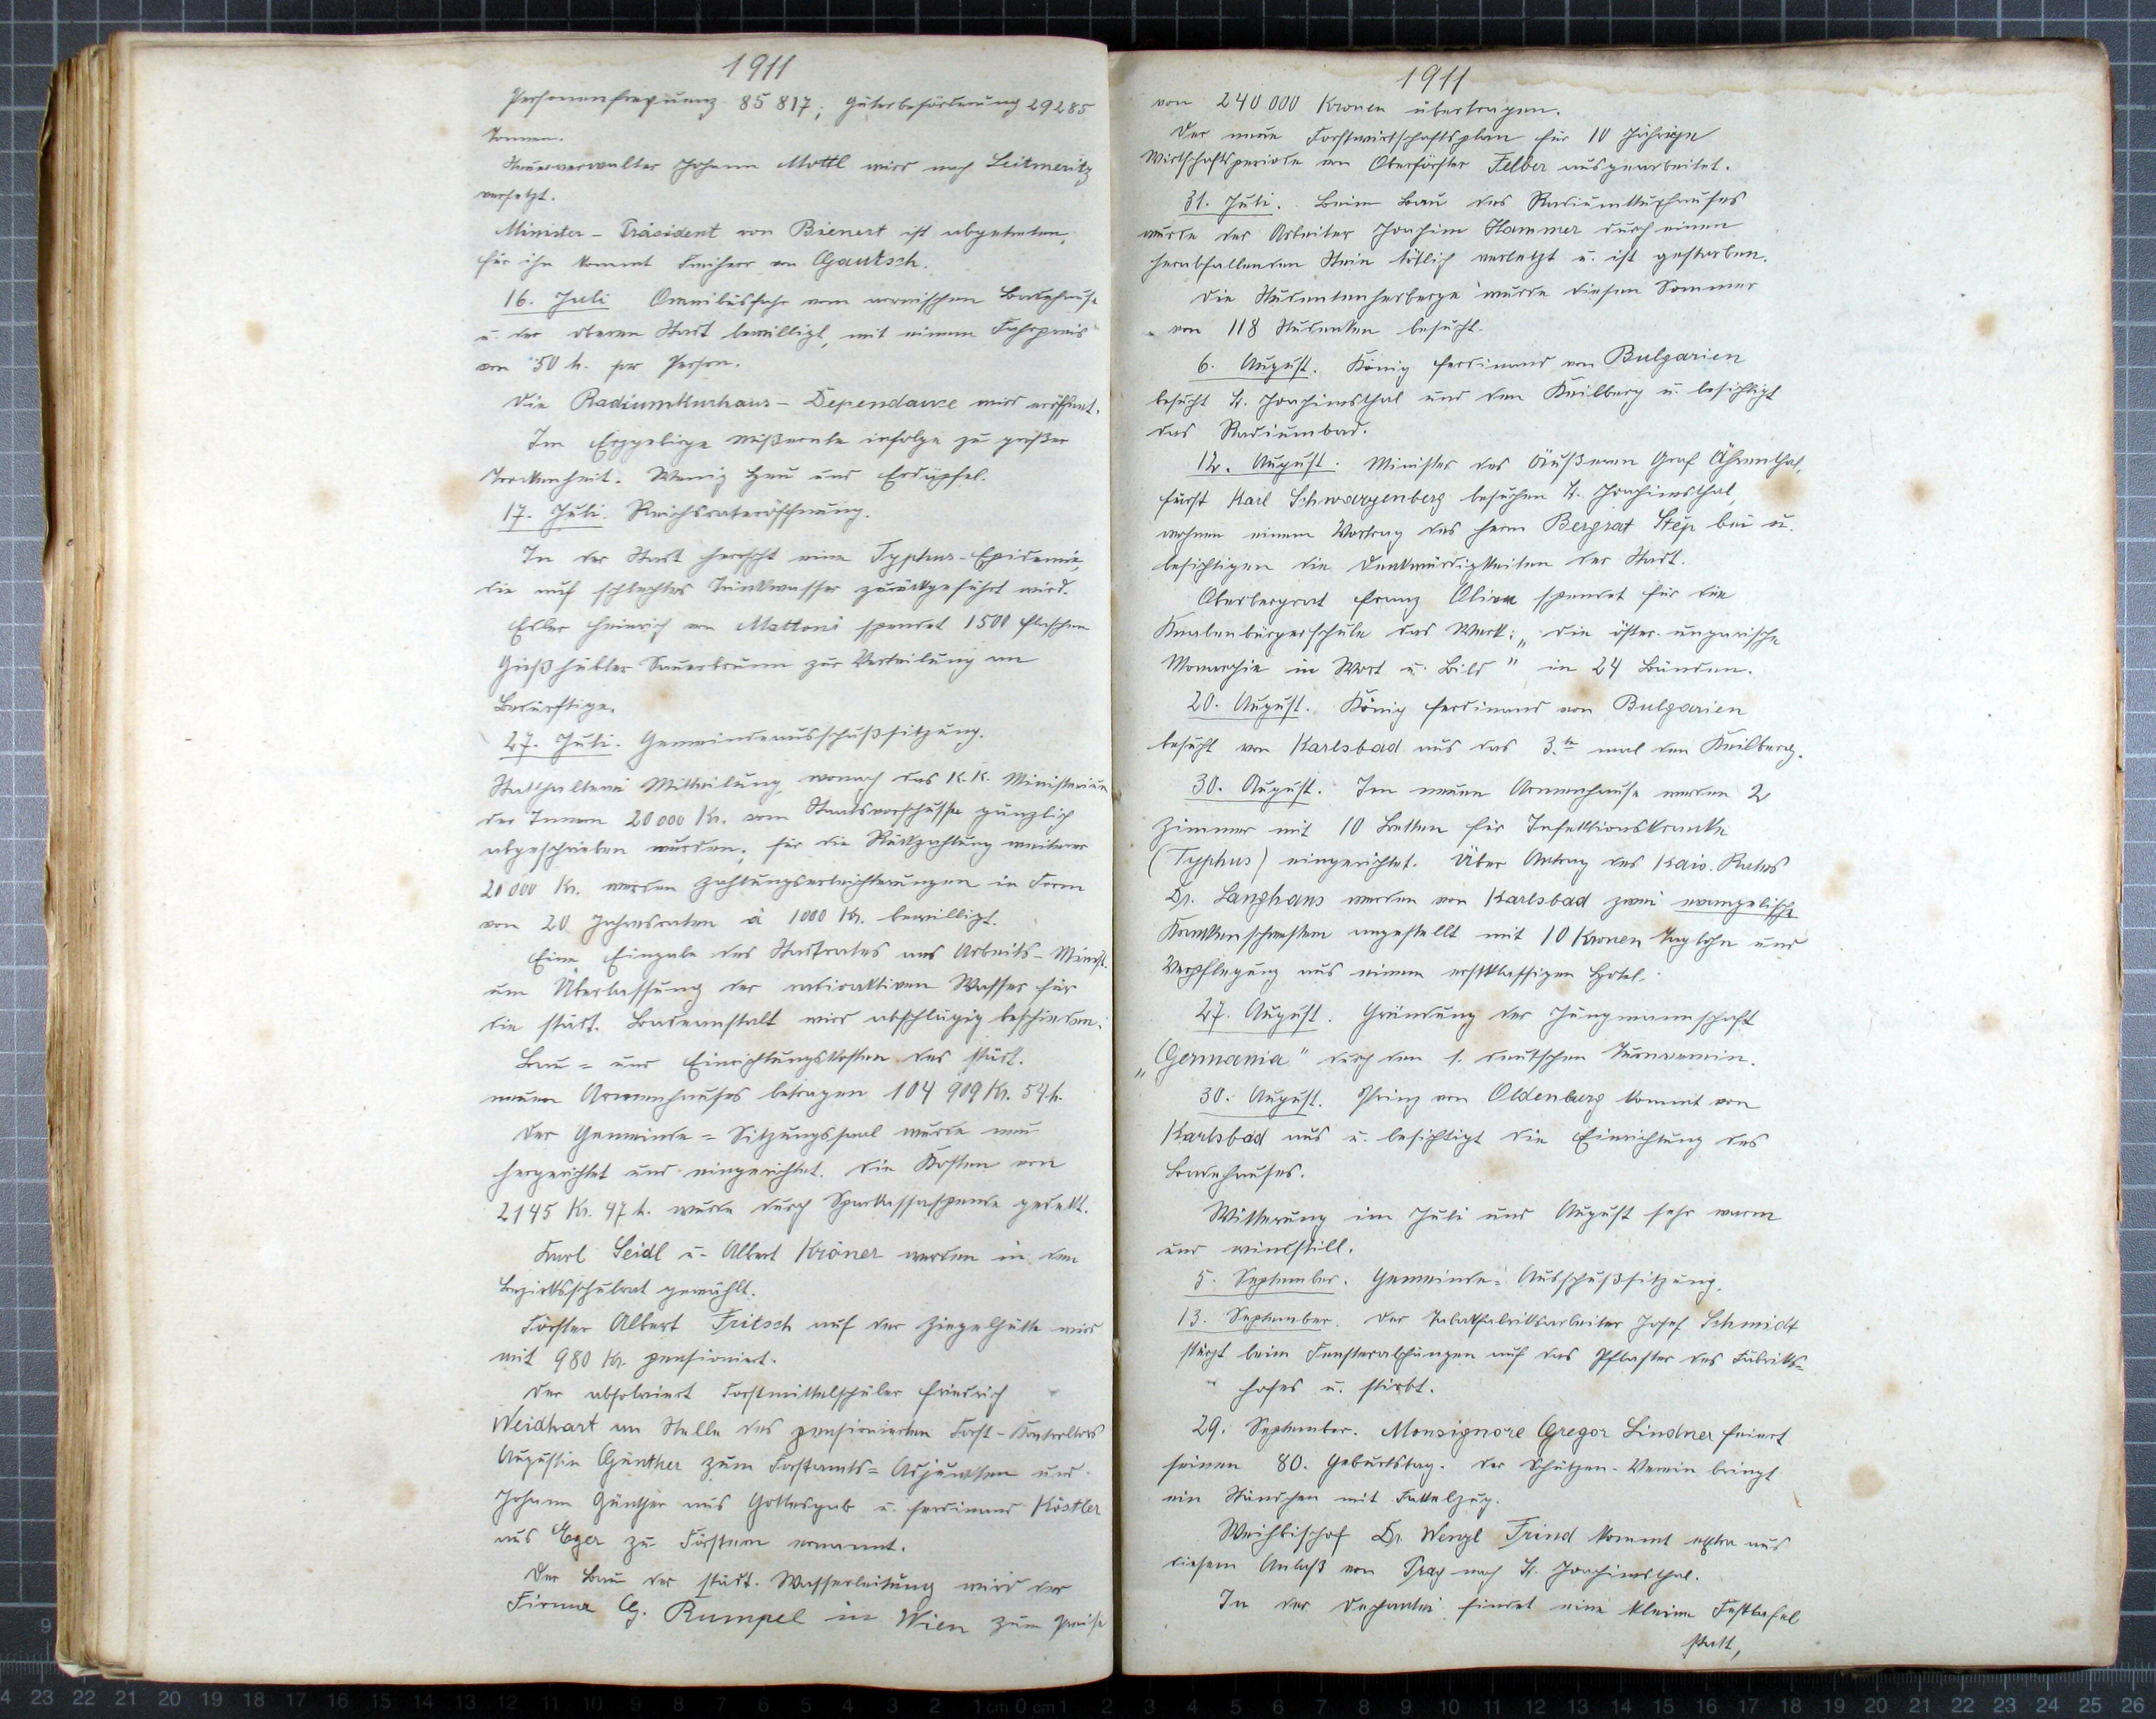 1911
Personenfrequenz 85 817; Güterbeförderung 29285
Tonnen.
Steuerverwalter Johann Mottl wird nach Leitmeritz
versetzt.
Minister-Präsident von Bienert ist abgetreten,
für ihn kommt Freiherr von Gautsch.
16. Juli Omnibusfahr vom ärarischen Badehause
u. der oberen Stadt bewilligt, mit einem Fahrpreis
von 50 h. per Person.
Die Radiumkurhaus-Dependance wird eröffnet.
Im Erzgebirge Mißernte infolge zu großer
Trockenheit. Wenig Heu und Erdäpfel.
17. Juli. Reichsrateröffnung.
In der Stadt herrscht eine Typhus-Epidemie,
die auf schlechtes Trinkwasser zurückgeführt wird.
Edler Heinrich von Mattoni spendet 1500 Flaschen
Gießhübler Sauerbrunn zur Verteilung an
Bedürftige.
27. Juli. Gemeindeausschußsitzung.
Statthalterei Mitteilung, wonach das K.K. Ministerium
des Innern 20000 Kr. vom Staatsvorschusse gänzlich
abgeschrieben wurden; für die Rückzahlung weiterer
20000 Kr. werden Zahlungserleichterungen in Form
von 20 Jahresraten à 1000 Kr. bewilligt.
Eine Eingabe des Stadtrates ans Arbeits-Minist.
um Überlassung der radioaktiven Wasser für
die städt. Badeanstalt wird abschlägig beschieden.
Bau- und Einrichtungskosten des städt.
neuen Armenhauses betragen 104 909 Kr. 54 h.
Der Gemeinde-Sitzungssaal wurde neu
hergerichtet und eingerichtet. Die Kosten von
2145 Kr. 47 h. wurde durch Sparkassaspende gedekt.
Karl Seidl u. Albert Kröner werden in den
Bezirksschulrat gewählt.
Förster Albert Fritsch auf der Ziegelhütte wird
mit 980 Kr. pensioniert.
Der absolviert Forstmittelschüler Friedrich
Weidhart an Stelle des pensionierten Forst-Kontrollors
Augustin Günther zum Forstamts-Adjunkten und
Johann Günther aus Gottesgab u. Ferdinand Köstler
aus Eger zu Förstern ernannt.
Der Bau der städt. Wasserleitung wird der
Firma G. Rumpel in Wien zum Preise
1911
von 240 000 Kronen übertragen.
Der neue Forstwirtschaftsplan für 10 jährige
Wirtschaftsperiode von Oberförster Felber ausgearbeitet.
31. Juli. Beim Bau des Radiumkurhauses
wurde der Arbeiter Joachim Hammer durch einen
herabfallenden Stein tötlich verletzt u. ist gestorben.
Die Studentenherberge wurde diesen Sommer
von 118 Studenten besucht.
6. August. König Ferdinand von Bulgarien
besucht St. Joachimsthal und den Keilberg u. besichtigt
das Radiumbad.
12. August. Minister des Äußeren Graf Ährenthal,
Fürst Karl Schwarzenberg besuchen St. Joachimsthal,
wohnen einem Vortrag des Herrn Bergrat Stěp bei u.
besichtigen die Denkwürdigkeiten der Stadt.
Oberbergrat Franz Oliva spendet für die
Knabenbürgerschule das Werk: „Die öster. ungarische
Monarchie in Wort u. Bild" in 24 Bänden.
20. August. König Ferdinand von Bulgarien
besucht von Karlsbad aus das 3.te mal den Keilberg.
30. August. Im neuen Armenhause werden 2
Zimmer mit 10 Betten für Infektionskranke
(Typhus) eingerichtet. Über Antrag des Kais. Rates
Dr. Langhans werden von Karlsbad zwei evangelische
Krankenschwestern angestellt mit 10 Kronen Taglohn und
Verpflegung aus einem erstklassigen Hotel.
27. August. Gründung der Jungmannschaft
„Germania" durch den 1. deutschen Turnverein.
30. August. Prinz von Oldenburg kommt von
Karlsbad aus u. besichtigt die Einrichtung des
Badehauses.
Witterung im Juli und August sehr warm
und windstill.
5. September. Gemeinde-Ausschußsitzung.
13. September. Der Tabakfabriksarbeiter Josef Schmidt
stürzt beim Fensterabhängen auf das Pflaster des Fabriks-
hofes u. stirbt.
29. September. Monsignore Gregor Lindner feiert
seinen 80. Geburtstag. Der Schützen-Verein bringt
ein Ständchen mit Fakelzug.
Weihbischof Dr. Wenzl Frind kommt extra aus
diesem Anlaß von Prag nach St. Joachimsthal.
In der Dechantei findet eine kleine Festtafel
statt,